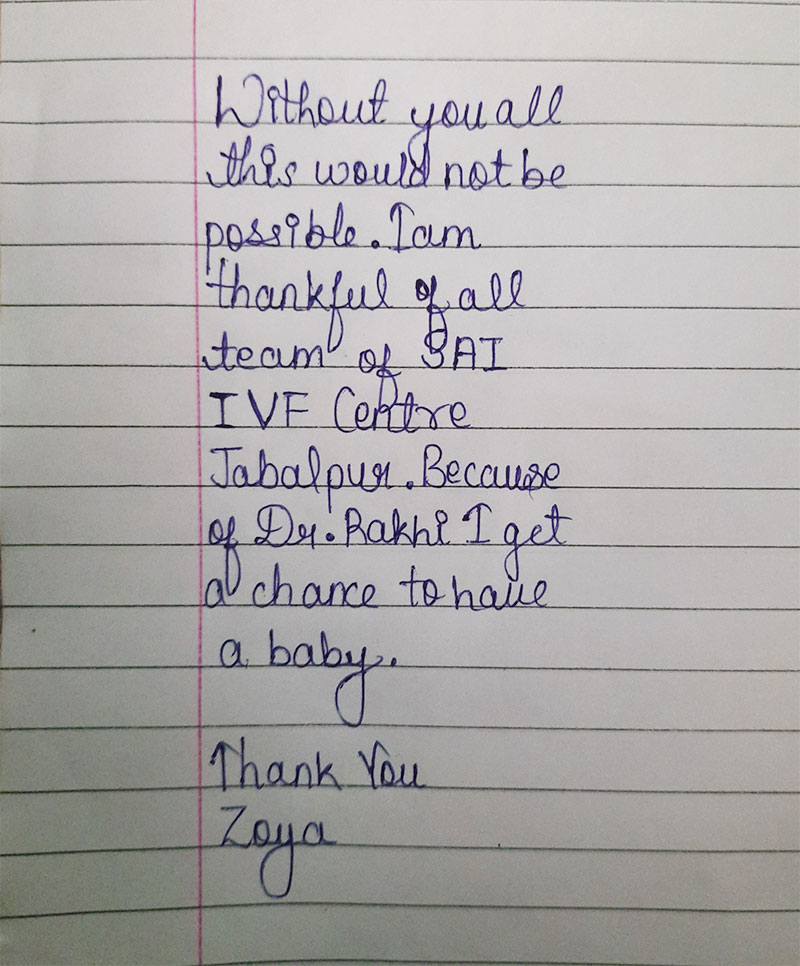 Without you all
this would not be
possible. I am
thankful of all
team of SAI
IVF Centre
Jabalpur. Because
of Dr. Rakhi I get
a chance to have
a baby.
Thank You
Zoya